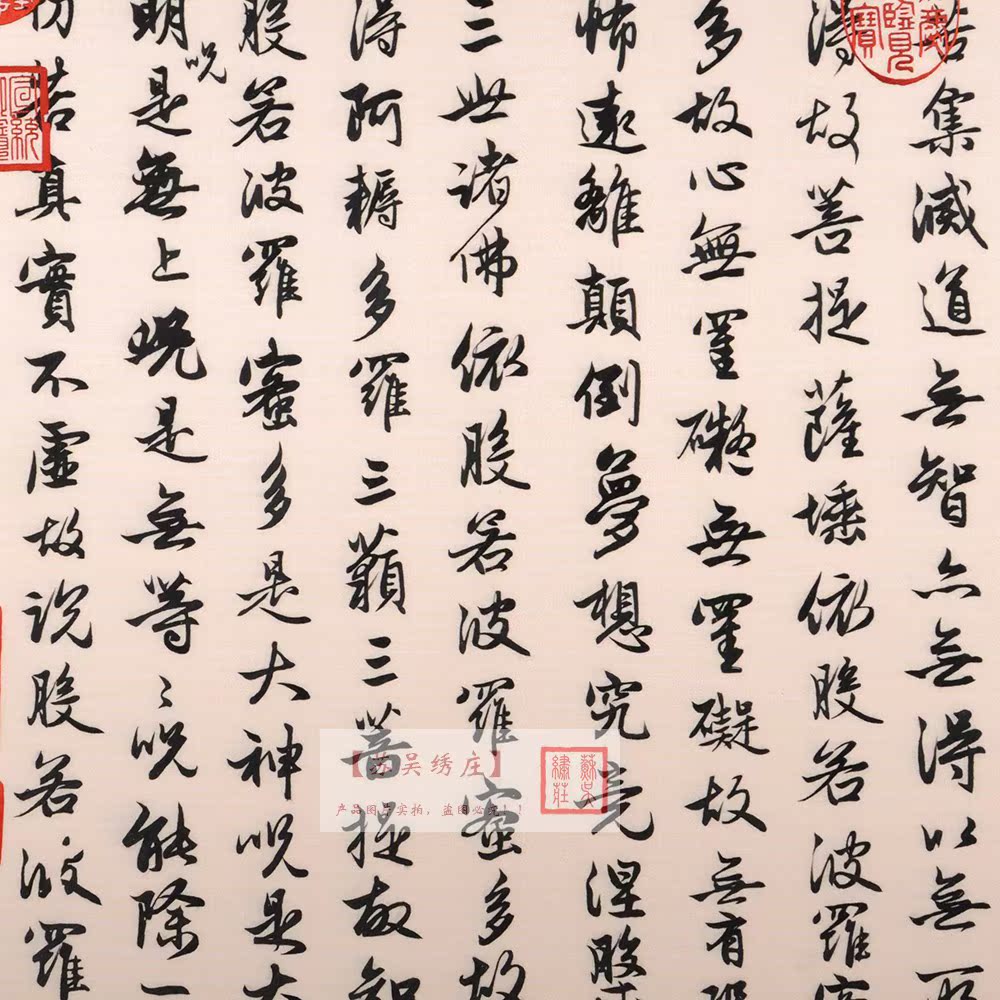 苦集滅道無智亦無得以無所
得故菩提薩埵依般若波羅蜜
多故心無罣礙無罣礙故無有恐
怖遠離顛倒夢想究竟涅槃
三世諸佛依般若波羅蜜多故
得阿耨多羅三藐三菩提故知
般若波羅蜜多是大神咒是大
明咒是無上咒是無等〻咒能除一
切苦真實不虛故說般若波羅
【苏吴绣庄】
产品图片实拍，盗图必究！！
蘇吳
繡莊